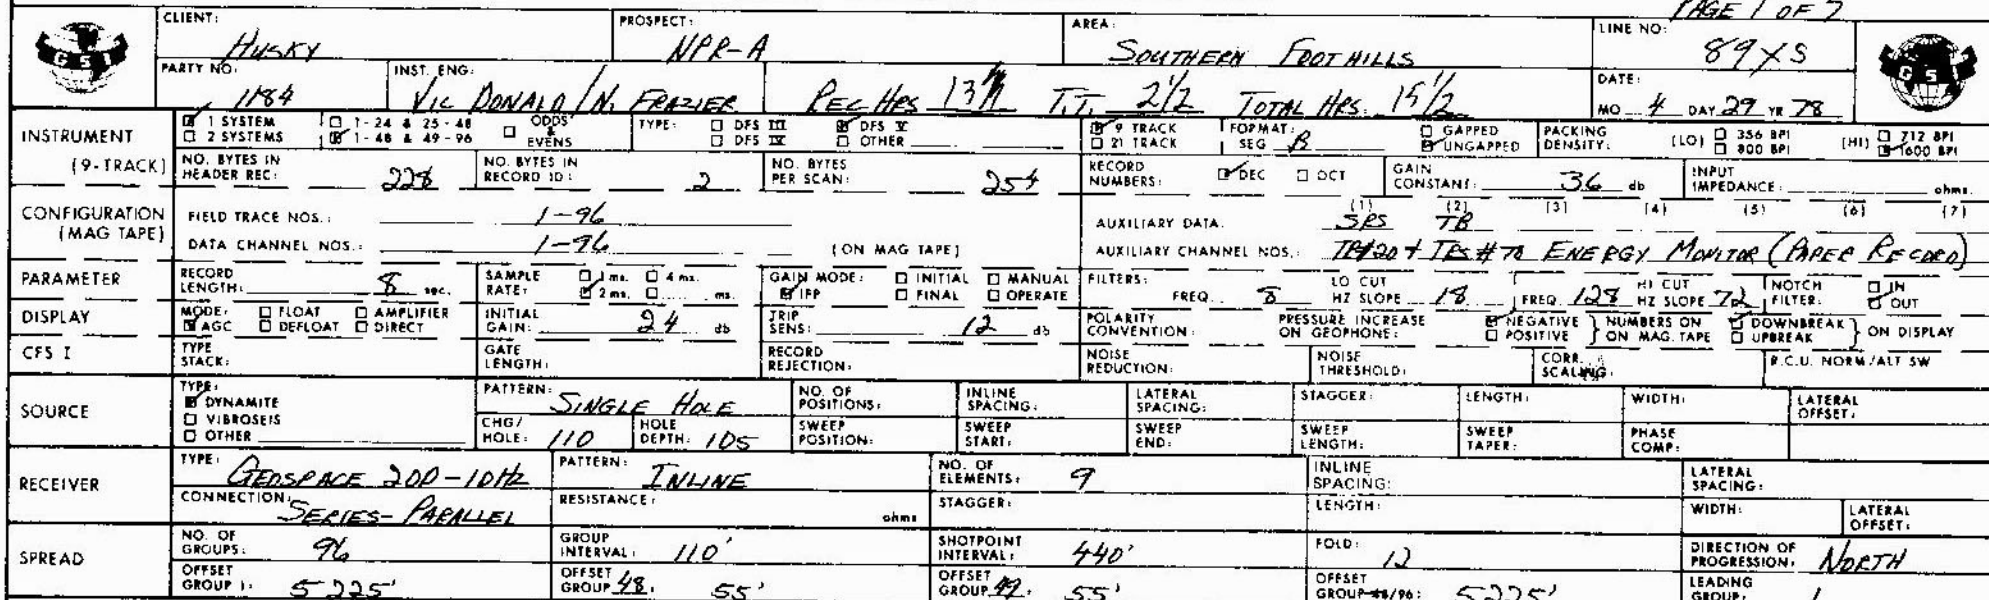 PAGE 1 OF 7
CLIENT: HUSKY PROSPECT: NPR-A AREA: SOUTHERN FOOTHILLS LINE NO: 89XS
GSI GSI
PARTY NO: 1184 INST. ENG: VIC DONALD / N. FRAZIER REC HRS 13 T.T. 2 1/2 TOTAL HRS. 15 1/2 DATE: MO 4 DAY 29 YR 78
INSTRUMENT 1 SYSTEM 1-24 & 25-48 ODDS & EVENS TYPE: DFS III DFS V 9 TRACK FORMAT: GAPPED PACKING DENSITY: (LO) 356 BPI (HI) 712 BPI
2 SYSTEMS 1-48 & 49-96 DFS IV OTHER 21 TRACK SEG B UNGAPPED 800 BPI 1600 BPI
(9-TRACK) NO. BYTES IN HEADER REC: 228 NO. BYTES IN RECORD ID: 2 NO. BYTES PER SCAN: 254 RECORD NUMBERS: DEC OCT GAIN CONSTANT: 36 db INPUT IMPEDANCE: ohms.
CONFIGURATION (MAG TAPE) FIELD TRACE NOS.: 1-96 AUXILIARY DATA. (1) SRS (2) TB (3) (4) (5) (6) (7)
DATA CHANNEL NOS.: 1-96 (ON MAG TAPE) AUXILIARY CHANNEL NOS.: ENERGY MONITOR (PAPER RECORD)
PARAMETER RECORD LENGTH: 8 sec. SAMPLE RATE: 1 ms. 4 ms. 2 ms. ms. GAIN MODE: INITIAL MANUAL IFP FINAL OPERATE FILTERS: LO CUT FREQ. 8 HZ SLOPE 18 HI CUT FREQ. 128 HZ SLOPE 72 NOTCH FILTER: IN OUT
DISPLAY MODE: FLOAT AMPLIFIER AGC DEFLOAT DIRECT INITIAL GAIN: 24 db TRIP SENS: 12 db POLARITY CONVENTION: PRESSURE INCREASE ON GEOPHONE: NEGATIVE POSITIVE } NUMBERS ON ON MAG. TAPE DOWNBREAK UPBREAK } ON DISPLAY
CFS I TYPE STACK: GATE LENGTH: RECORD REJECTION: NOISE REDUCTION: NOISE THRESHOLD: CORR. SCALING: R.C.U. NORM/ALT SW
SOURCE TYPE: DYNAMITE VIBROSEIS OTHER PATTERN: SINGLE HOLE NO. OF POSITIONS: INLINE SPACING: LATERAL SPACING: STAGGER: LENGTH: WIDTH: LATERAL OFFSET:
CHG/HOLE: 110 HOLE DEPTH: 105 SWEEP POSITION: SWEEP START: SWEEP END: SWEEP LENGTH: SWEEP TAPER: PHASE COMP:
RECEIVER TYPE: GEOSPACE 20D-10Hz PATTERN: INLINE NO. OF ELEMENTS: 9 INLINE SPACING: LATERAL SPACING:
CONNECTION: SERIES-PARALLEL RESISTANCE: ohms STAGGER: LENGTH: WIDTH: LATERAL OFFSET:
SPREAD NO. OF GROUPS: 96 GROUP INTERVAL: 110' SHOTPOINT INTERVAL: 440' FOLD: 12 DIRECTION OF PROGRESSION: NORTH
OFFSET GROUP 1: 5225' OFFSET GROUP 48: 55' OFFSET GROUP 49: 55' OFFSET GROUP 48/96: 5225' LEADING GROUP: